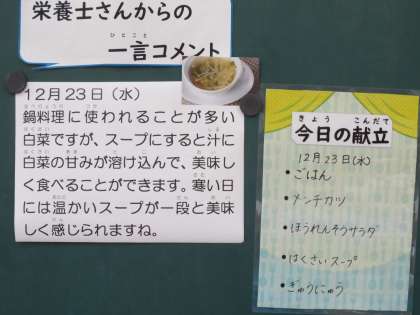 栄養士さんからの
一言コメント
12月23日（水）
鍋料理に使われることが多い
白菜ですが、スープにすると汁に
白菜の甘みが溶け込んで、美味し
く食べることができます。寒い日
には温かいスープが一段と美味
しく感じられますね。
今日の献立
12月23日(水)
・ごはん
・メンチカツ
・ほうれんそうサラダ
・はくさいスープ
・ぎゅうにゅう